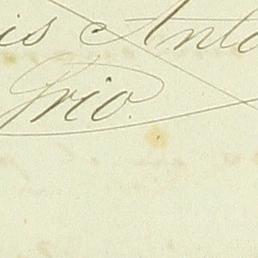 is Anto
Frio.